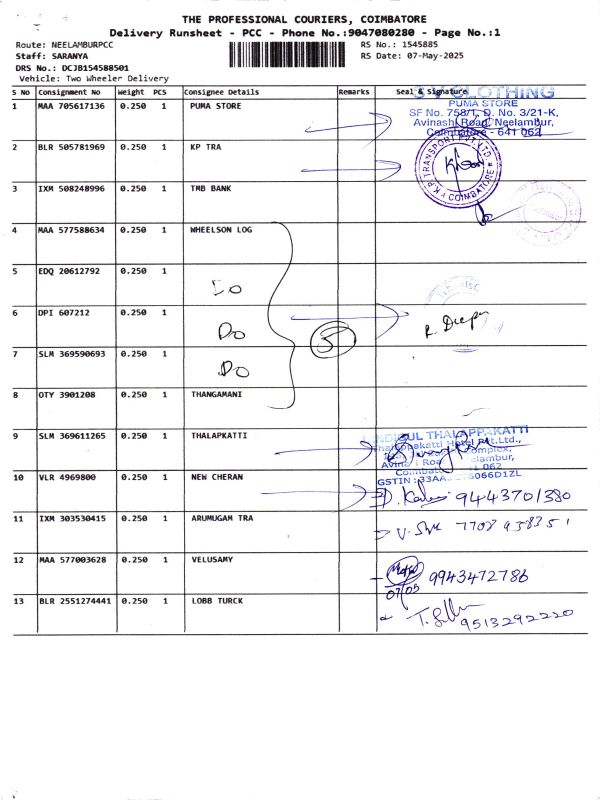 THE PROFESSIONAL COURIERS, COIMBATORE
Delivery Runsheet - PCC - Phone No.:9047080280 - Page No.:1
Route: NEELAMBURPCC RS No.: 1545885
Staff: SARANYA RS Date: 07-May-2025
DRS No.: DCJB154588501
Vehicle: Two Wheeler Delivery
S No Consignment No Weight PCS Consignee Details Remarks Seal & Signature
CLOTHING
1 MAA 705617136 0.250 1 PUMA STORE
PUMA STORE
SF No. 758/1, D. No. 3/21-K,
Avinashi Road, Neelambur,
Coimbatore - 641 062
2 BLR 505781969 0.250 1 KP TRA
K.P. TRANSPORT PVT. LTD
COIMBATORE
3 IXM 508248996 0.250 1 TMB BANK
4 MAA 577588634 0.250 1 WHEELSON LOG
5 EDQ 20612792 0.250 1 Do
6 DPI 607212 0.250 1 Do
5
R. Deepa
7 SLM 369590693 0.250 1 Do
8 OTY 3901208 0.250 1 THANGAMANI
9 SLM 369611265 0.250 1 THALAPKATTI
DINDIGUL THALAPPAKATTI
Thalappakatti Hotel Pvt.Ltd.,
Complex,
Avinashi Road, Neelambur,
Coimbatore - 641 062
10 VLR 4969800 0.250 1 NEW CHERAN
9443701380
11 IXM 303530415 0.250 1 ARUMUGAM TRA
12 MAA 577003628 0.250 1 VELUSAMY
9943472786
07/05
13 BLR 2551274441 0.250 1 LOBB TURCK
9513292220